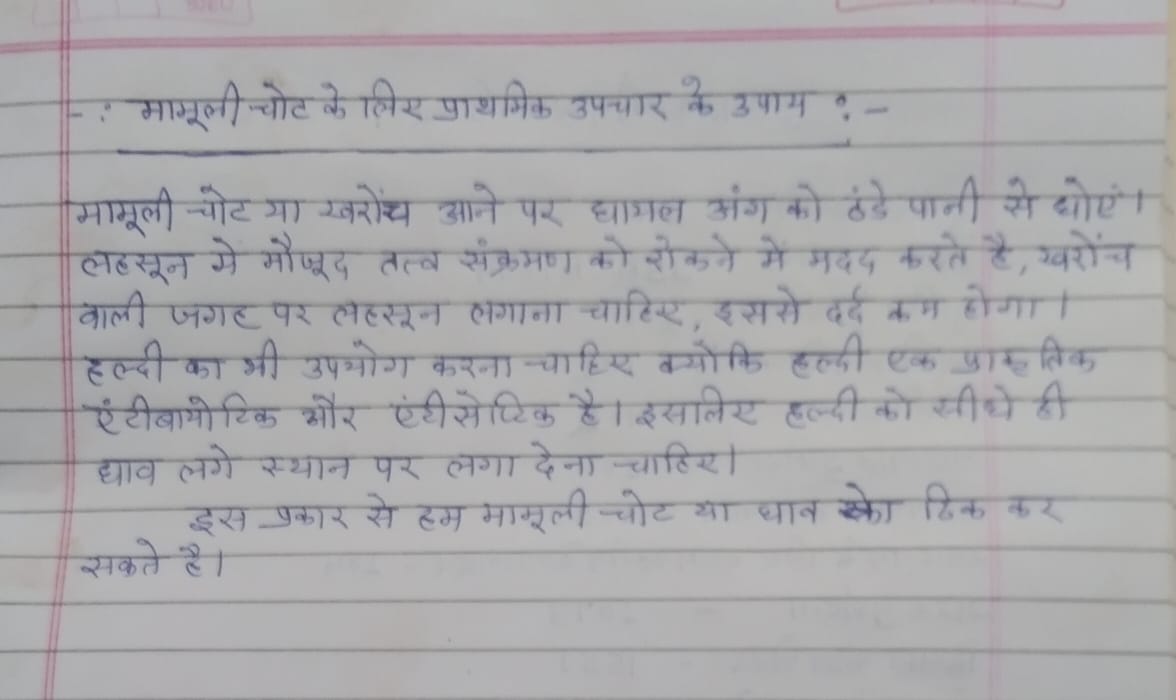 -: मामूली चोट के लिए प्राथमिक उपचार के उपाय :-
मामूली चोट या खरोंच आने पर घायल अंग को ठंडे पानी से धोएं।
लहसून में मौजूद तत्व संक्रमण को रोकने में मदद करते है, खरोंच
वाली जगह पर लहसून लगाना चाहिए, इससे दर्द कम होगा।
हल्दी का भी उपयोग करना चाहिए क्योकि हल्दी एक प्राकृतिक
एंटीबायोटिक और एंटीसेप्टिक है। इसलिए हल्दी को सीधे ही
घाव लगे स्थान पर लगा देना चाहिए।
इस प्रकार से हम मामूली चोट या घाव को ठिक कर
सकते है।